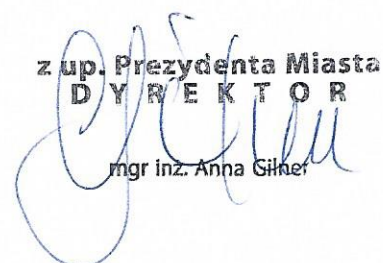 z up. Prezydenta Miasta
D Y R E K T O R
mgr inż. Anna Gilner